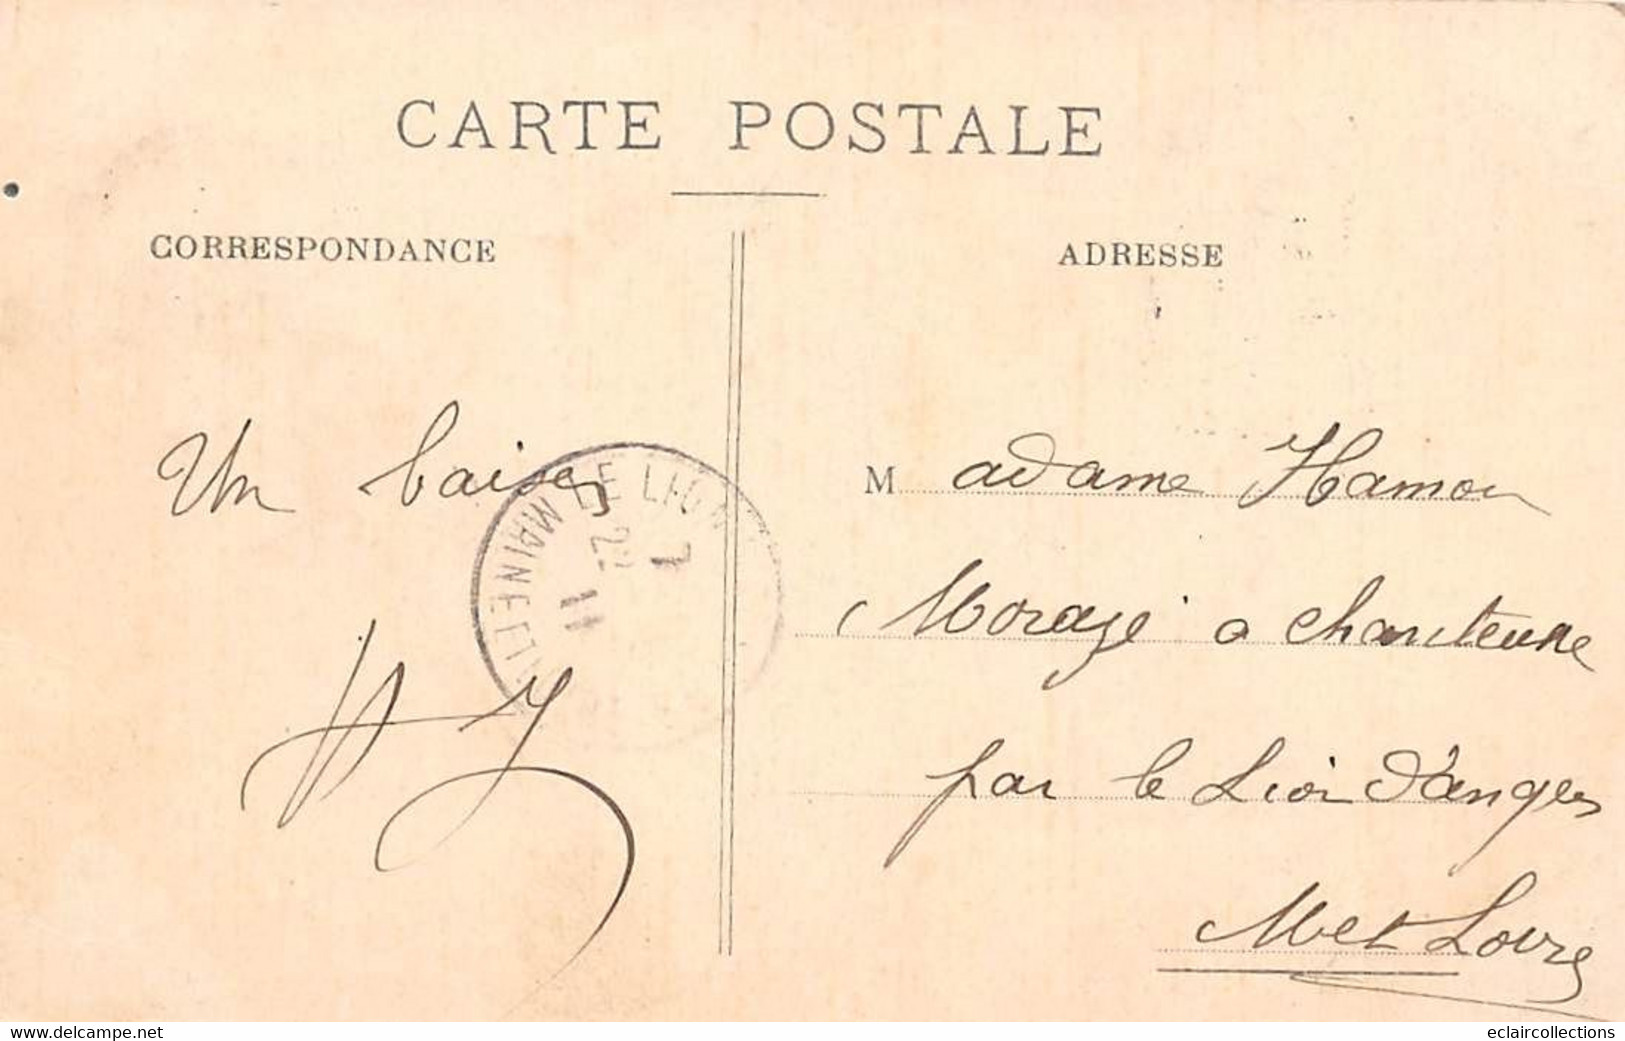 CARTE POSTALE
CORRESPONDANCE
ADRESSE
Un baiser
M adame Hamon
à chanteune
par le Lion d'angers
M et Loire
DE LION
MAINE ET L
22 7
11
www.delcampe.net
eclaircollections